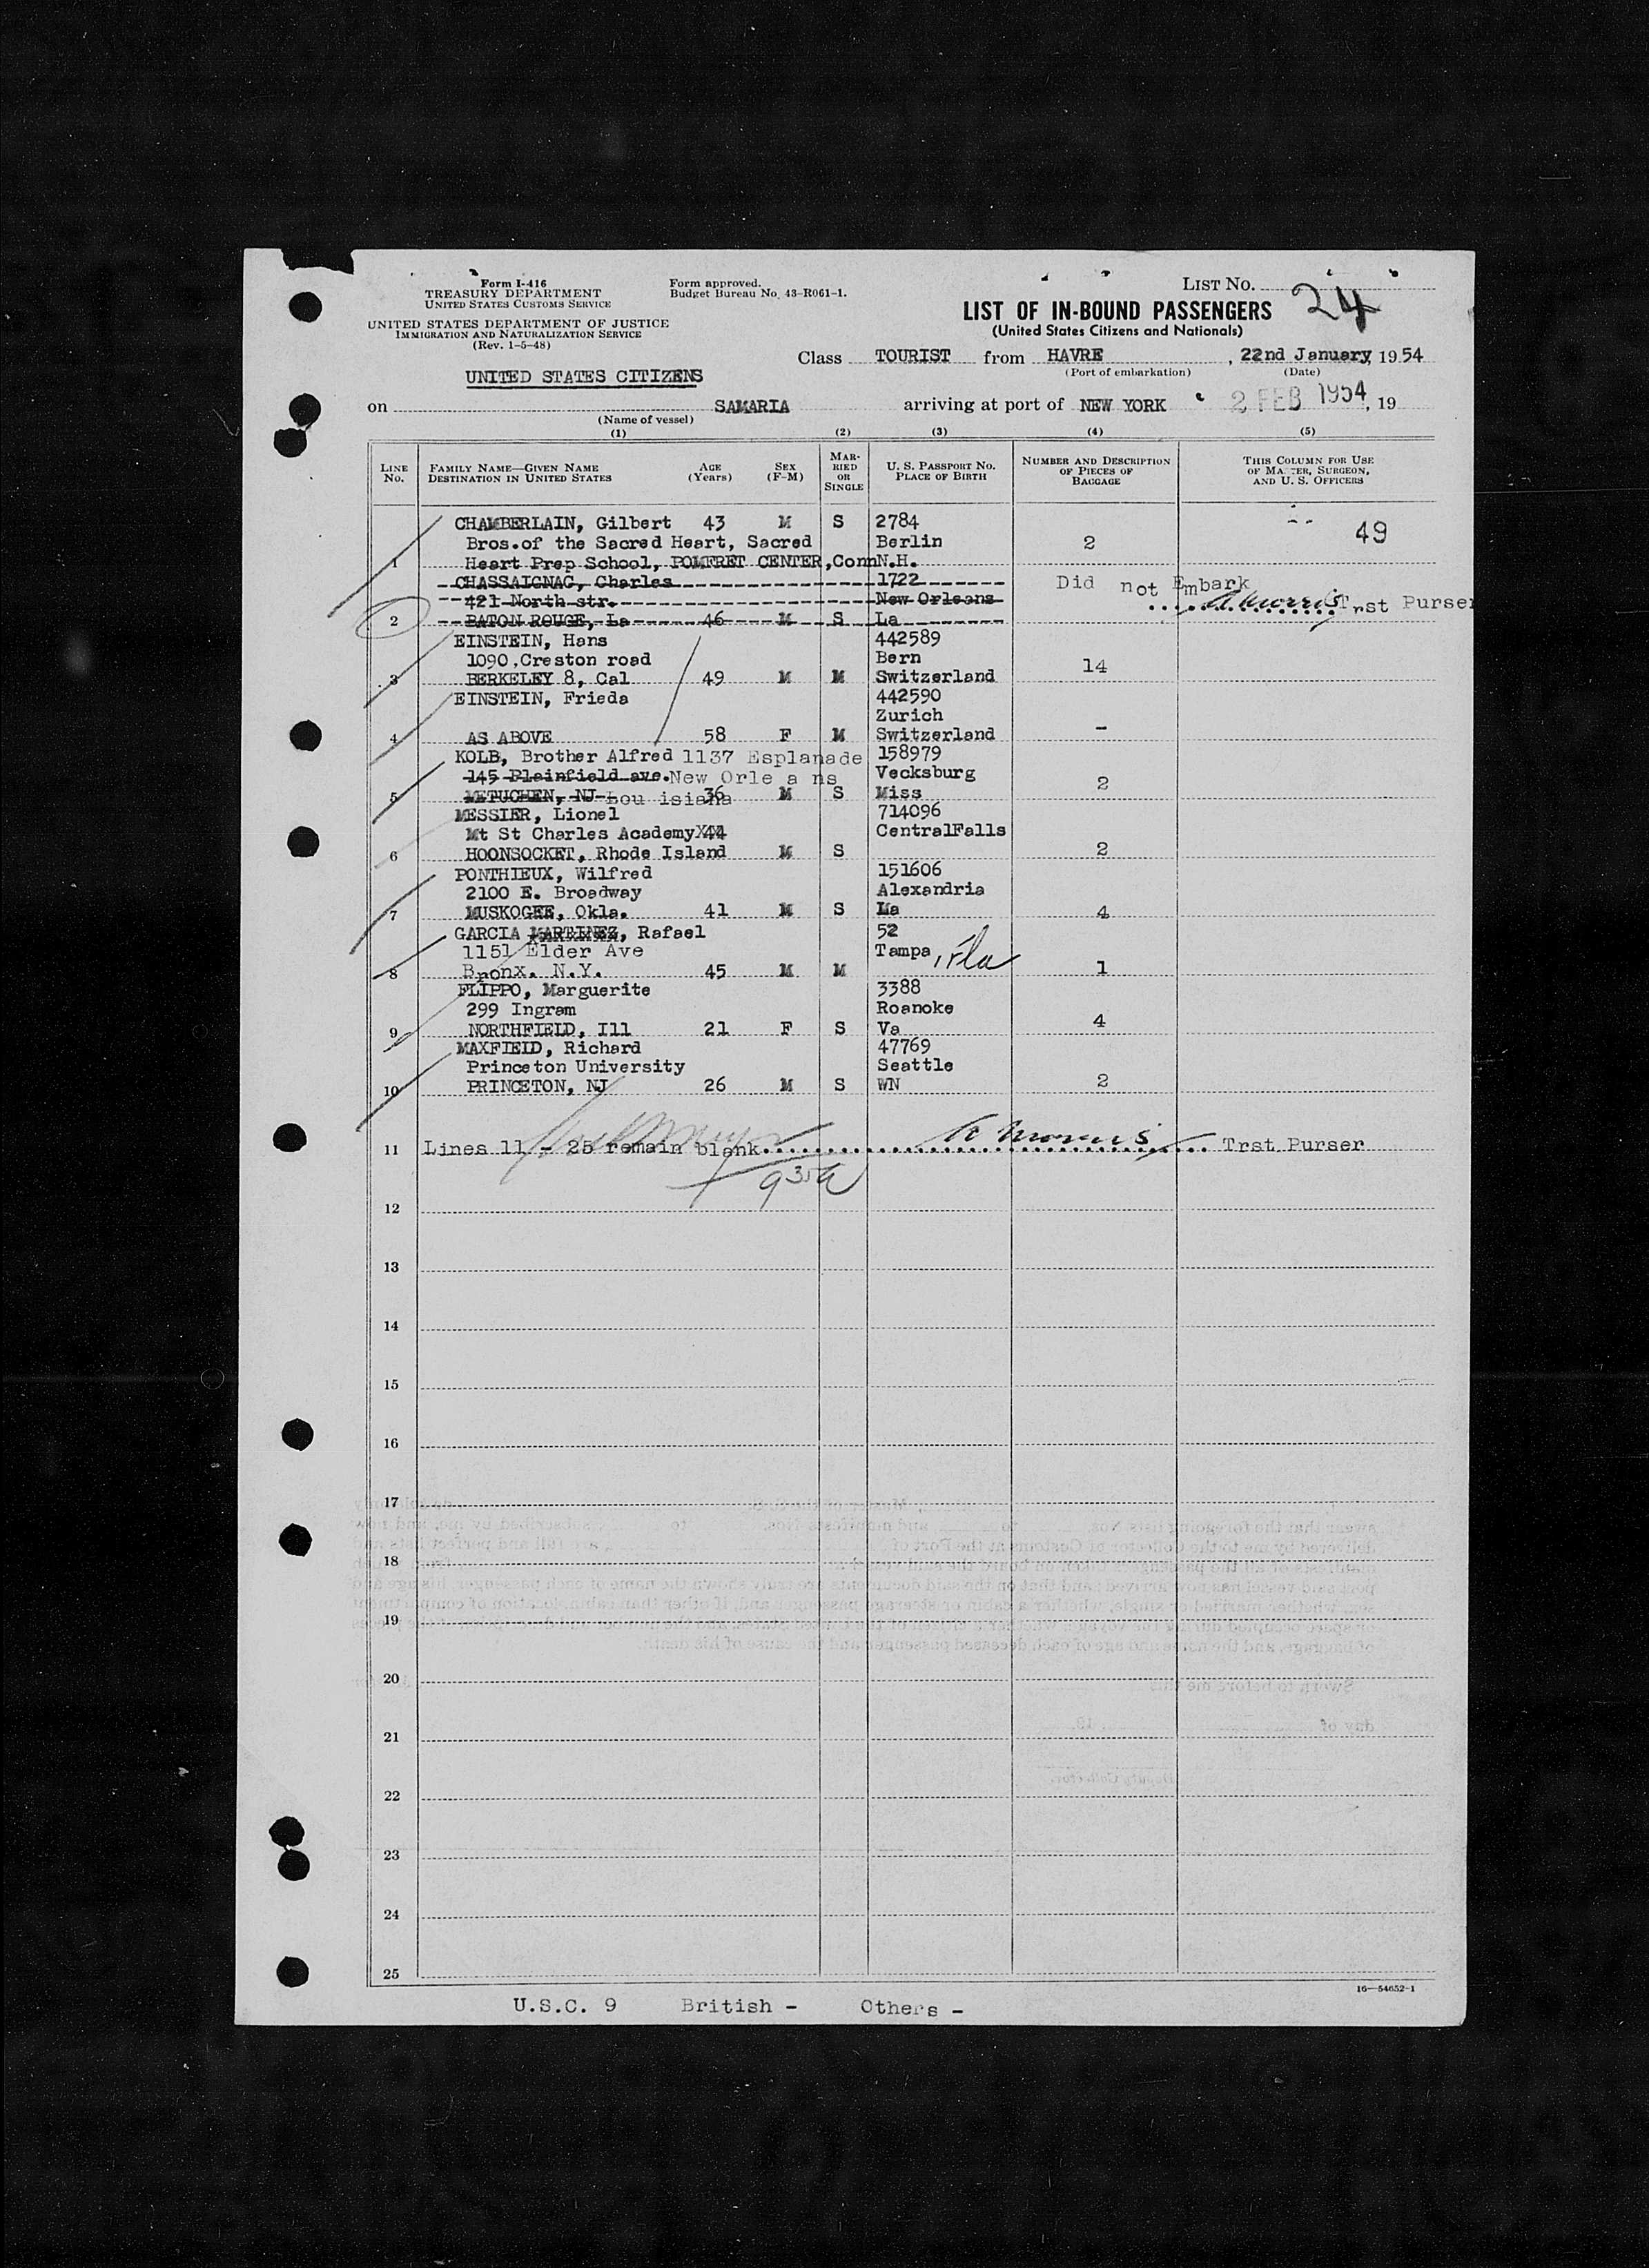 Form I-416
TREASURY DEPARTMENT
UNITED STATES CUSTOMS SERVICE
UNITED STATES DEPARTMENT OF JUSTICE
IMMIGRATION AND NATURALIZATION SERVICE
(Rev. 1-5-48)
Form approved.
Budget Bureau No. 43-R061-1.
LIST NO. 24
LIST OF IN-BOUND PASSENGERS
(United States Citizens and Nationals)
Class TOURIST from HAVRE , 22nd January, 1954
(Port of embarkation) (Date)
UNITED STATES CITIZENS
on SAMARIA arriving at port of NEW YORK 2 FEB 1954, 19
(Name of vessel)
(1) (2) (3) (4) (5)
LINE NO. FAMILY NAME—GIVEN NAME DESTINATION IN UNITED STATES AGE (Years) SEX (F-M) MARRIED OR SINGLE U. S. PASSPORT NO. PLACE OF BIRTH NUMBER AND DESCRIPTION OF PIECES OF BAGGAGE THIS COLUMN FOR USE OF MASTER, SURGEON, AND U. S. OFFICERS
CHAMBERLAIN, Gilbert 43 M S 2784 49
Bros.of the Sacred Heart, Sacred Berlin 2
1 Heart Prep School, POMFRET CENTER,Conn N.H.
CHASSAIGNAC, Charles 1722 Did not Embark
421 North str. New Orleans A Morris Trst Purser
2 BATON ROUGE, La 46 M S La
EINSTEIN, Hans 442589
1090,Creston road Bern 14
3 BERKELEY 8, Cal 49 M M Switzerland
EINSTEIN, Frieda 442590
Zurich
4 AS ABOVE 58 F M Switzerland -
KOLB, Brother Alfred 1137 Esplanade 158979
145 Plainfield ave. New Orle a ns Vecksburg 2
5 METUCHEN, NJ Lou isiana 36 M S Miss
MESSIER, Lionel 714096
Mt St Charles AcademyXX44 CentralFalls
6 HOONSOCKET, Rhode Island M S 2
PONTHIEUX, Wilfred 151606
2100 E. Broadway Alexandria
7 MUSKOGEE, Okla. 41 M S La 4
GARCIA MARTINEZ, Rafael 52
1151 Elder Ave Tampa, Fla
8 Bronx. N.Y. 45 M M 1
FLIPPO, Marguerite 3388
299 Ingram Roanoke 4
9 NORTHFIELD, Ill 21 F S Va
MAXFIELD, Richard 47769
Princeton University Seattle
10 PRINCETON, NJ 26 M S WN 2
11 Lines 11 - 25 remain blank A Morris Trst Purser
935a
12
13
14
15
16
17
18
19
20
21
22
23
24
25
16—54652-1
U.S.C. 9 British - Others -